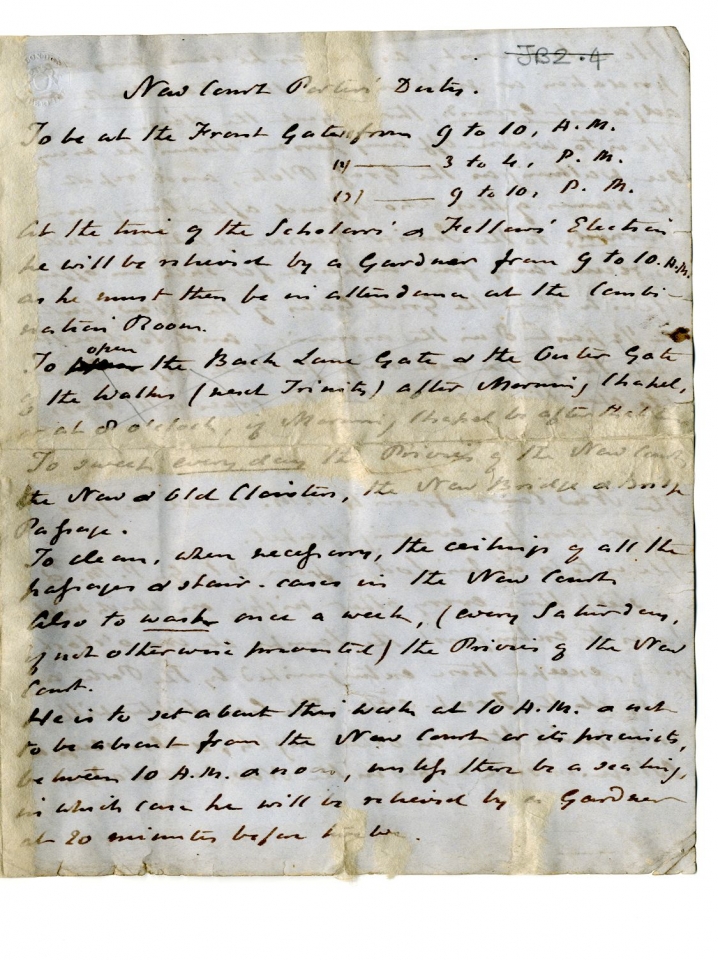 JB2.4
New Court Porter's Duty.
To be at the Front Gate from 9 to 10, A.M.
(1) —— 3 to 4, P.M.
(2) —— 9 to 10, P.M.
At the time of the Scholars' & Fellows' Election
he will be relieved by a Gardner from 9 to 10. A.M.
as he must then be in attendance at the Combi-
nation Room.
To open the Back Lane Gate & the Outer Gate
of the Walks (next Trinity) after Morning Chapel,
or at 8 o'clock, if Morning Chapel be after that
To sweep every day the Privies of the New Court
the New & Old Cloisters, the New Bridge & Bridge
Passage.
To clean, when necessary, the ceilings of all the
passages & stair-cases in the New Court
Also to wash once a week, (every Saturday,
if not otherwise prevented) the Privies of the New
Court.
He is to set about this work at 10 A.M. & not
to be absent from the New Court or its precincts,
between 10 A.M. & noon, unless there be a sealing,
in which case he will be relieved by a Gardner
at 20 minutes before twelve.